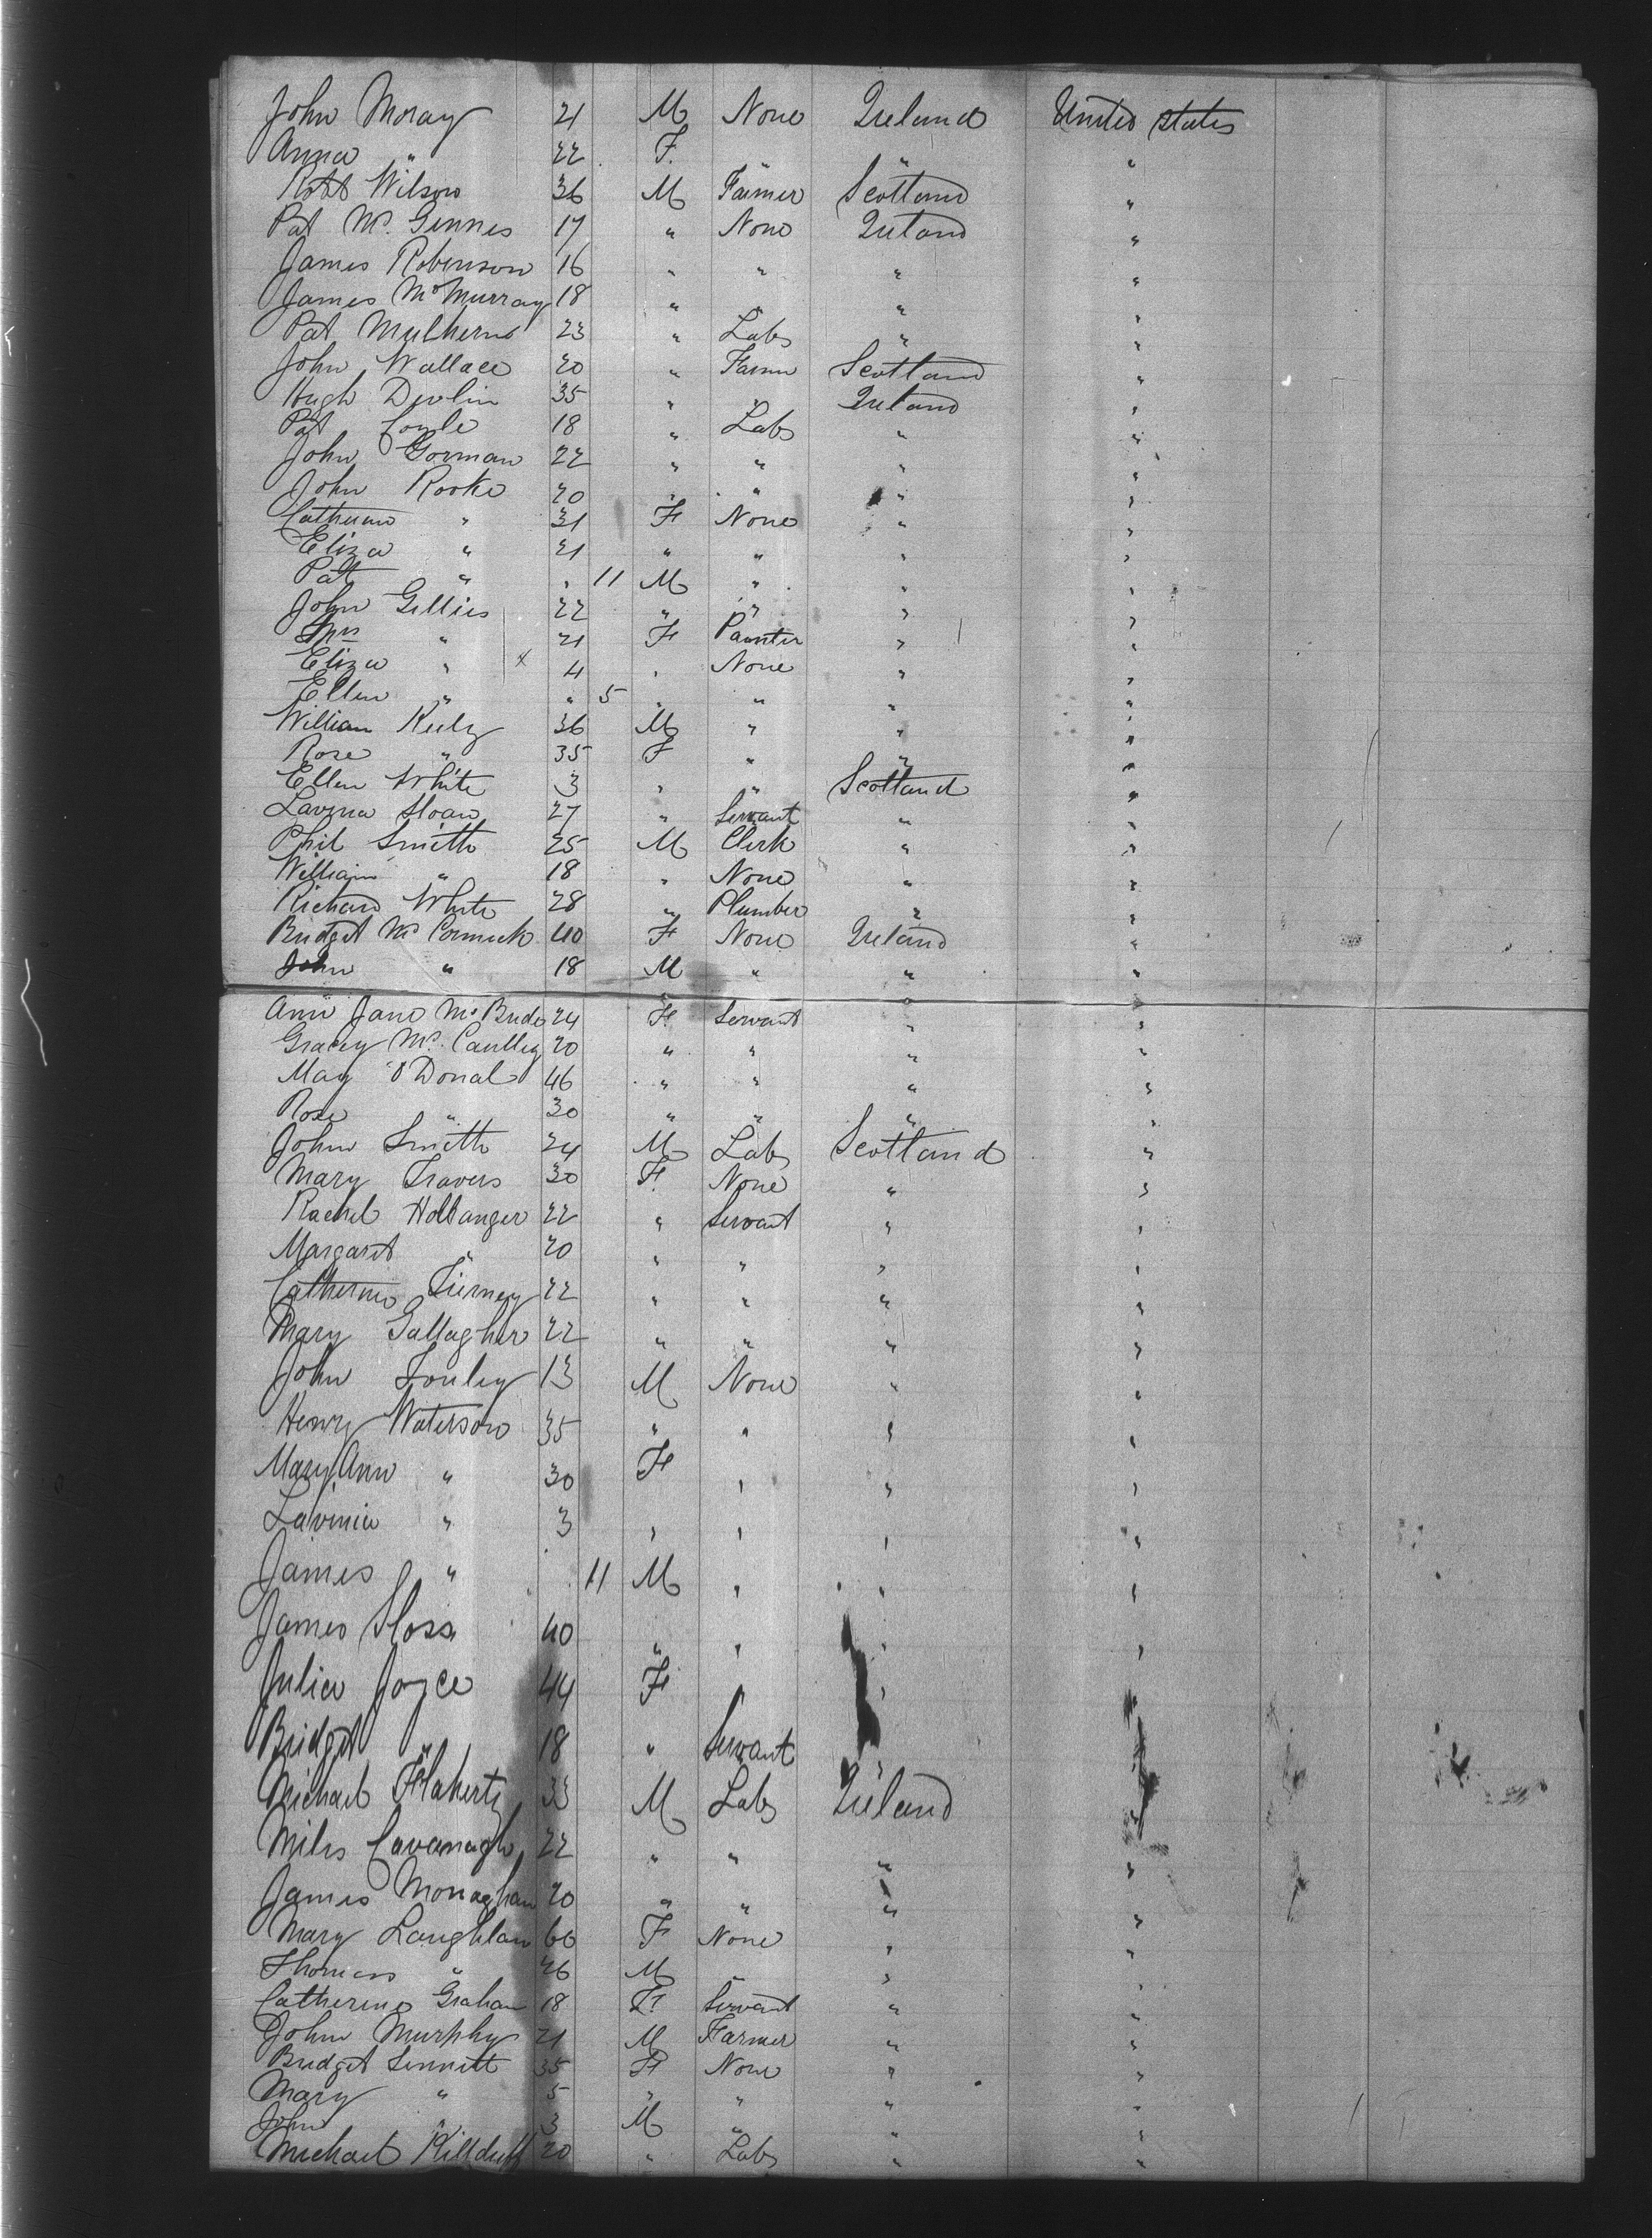 John Moray 21 M None Ireland United States
Anna " 22 F. " " "
Robt Wilson 36 M Farmer Scotland "
Pat Mc. Ginnes 17 " None Ireland "
James Robinson 16 " " " "
James McMurray 18 " " " "
Pat Mulhern 23 " Lab " "
John Wallace 20 " Farmer Scotland "
Hugh Devlin 35 " " Ireland "
Pat Coyle 18 " Lab " "
John Gorman 22 " " " "
John Rooke 20 " " " "
Catherine " 31 F None " "
Eliza " 21 " " " "
Pat " " 11 M " " "
John Gillies 22 " " " "
Mrs " 21 F Painter " "
Eliza " x 4 " None " "
Ellen " " 5 " " " "
William Kiely 36 M " " "
Rose " 35 F " " "
Ellen White 3 " " Scotland "
Lavina Sloan 27 " Servant " "
Phil Smith 25 M Clerk " "
William " 18 " None " "
Richard White 28 " Plumber " "
Bridget McCormick 40 F None Ireland "
John " 18 M " " "
Ann Jane McBride 24 F Servant " "
Gracey Mc. Caulley 20 " " " "
May O'Donal 46 " " " "
Rose " 30 " " " "
John Smith 24 M Lab Scotland "
Mary Travers 30 F. None " "
Rachel 22 " Servant " "
Margaret " 20 " " " "
Catherine Tierney 22 " " " "
Mary Gallagher 22 " " " "
John 13 M None " "
Henry Waterson 35 " " " "
Mary Ann " 30 F " " "
Lavinia " 3 " " " "
James " 11 M " " "
James Sloss 40 " " " "
Julia Joyce 44 F " " "
Bridget " 18 " Servant " "
Michael Flaherty 33 M Lab Ireland "
Miles Cavanagh 22 " " " "
James Monaghan 20 " " " "
Mary Laughlan 60 F None " "
Thomas " 26 M " " "
Catherine Graham 18 F Servant " "
John Murphy 21 M Farmer " "
Bridget Sennett 35 F None " "
Mary " 5 " " " "
John " 3 M " " "
Michael Killduff 20 " Lab " "